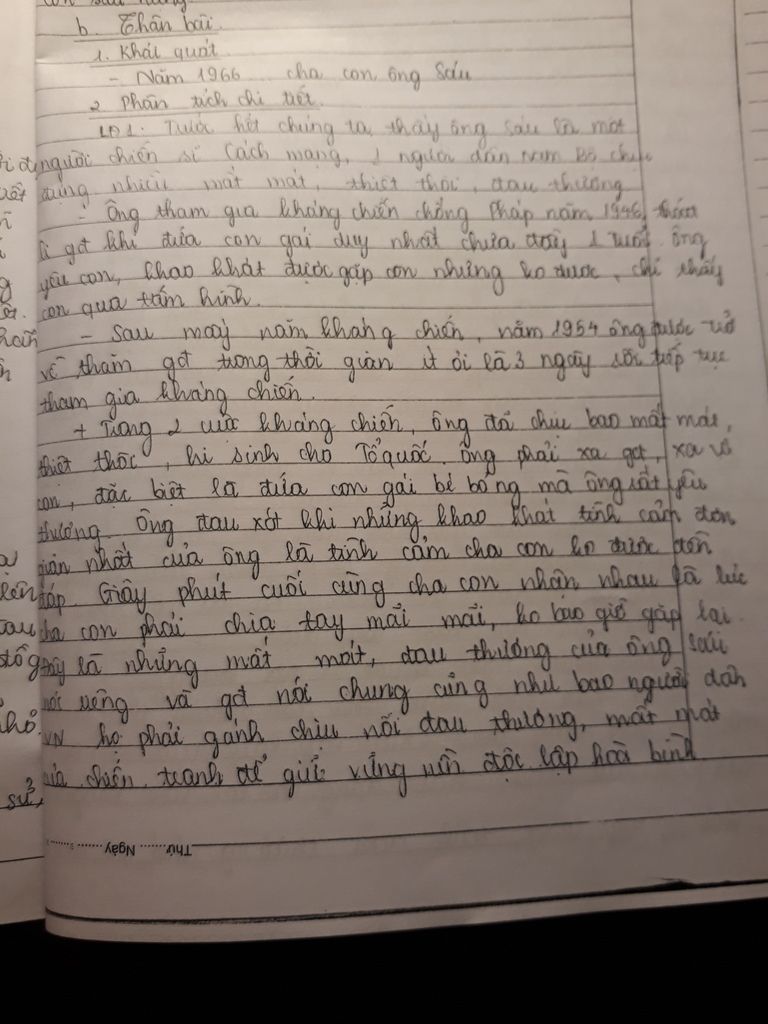 b. Thân bài.
1. Khái quát
- Năm 1966 ... cha con ông Sáu
2. Phân tích chi tiết.
LĐ1: Trước hết chúng ta thấy ông Sáu là một
người chiến sĩ Cách mạng, 1 người dân Nam Bộ chịu
đựng nhiều mất mát, thiệt thòi, đau thương
- Ông tham gia kháng chiến chống Pháp năm 1946, thoát
li gđ khi đứa con gái duy nhất chưa đầy 1 tuổi. Ông
yêu con, khao khát được gặp con nhưng ko được, chỉ thấy
con qua tấm hình.
- Sau mấy năm kháng chiến, năm 1954 ông được trở
về thăm gđ trong thời gian ít ỏi là 3 ngày rồi tiếp tục
tham gia kháng chiến.
+ Trong 2 cuộc kháng chiến, ông đã chịu bao mất mát,
thiệt thòi, hi sinh cho Tổ quốc. Ông phải xa gđ, xa vợ
con, đặc biệt là đứa con gái bé bỏng mà ông rất yêu
thương. Ông đau xót khi những khao khát tình cảm đơn
giản nhất của ông là tình cảm cha con ko được đền
đáp. Giây phút cuối cùng cha con nhận nhau là lúc
cha con phải chia tay mãi mãi, ko bao giờ gặp lại.
Đây là những mất mát, đau thương của ông Sáu
nói riêng và gđ nói chung cũng như bao người dân
VN họ phải gánh chịu nỗi đau thương, mất mát
của chiến tranh để giữ vững nền độc lập hoà bình.
Thứ ....... Ngày .......